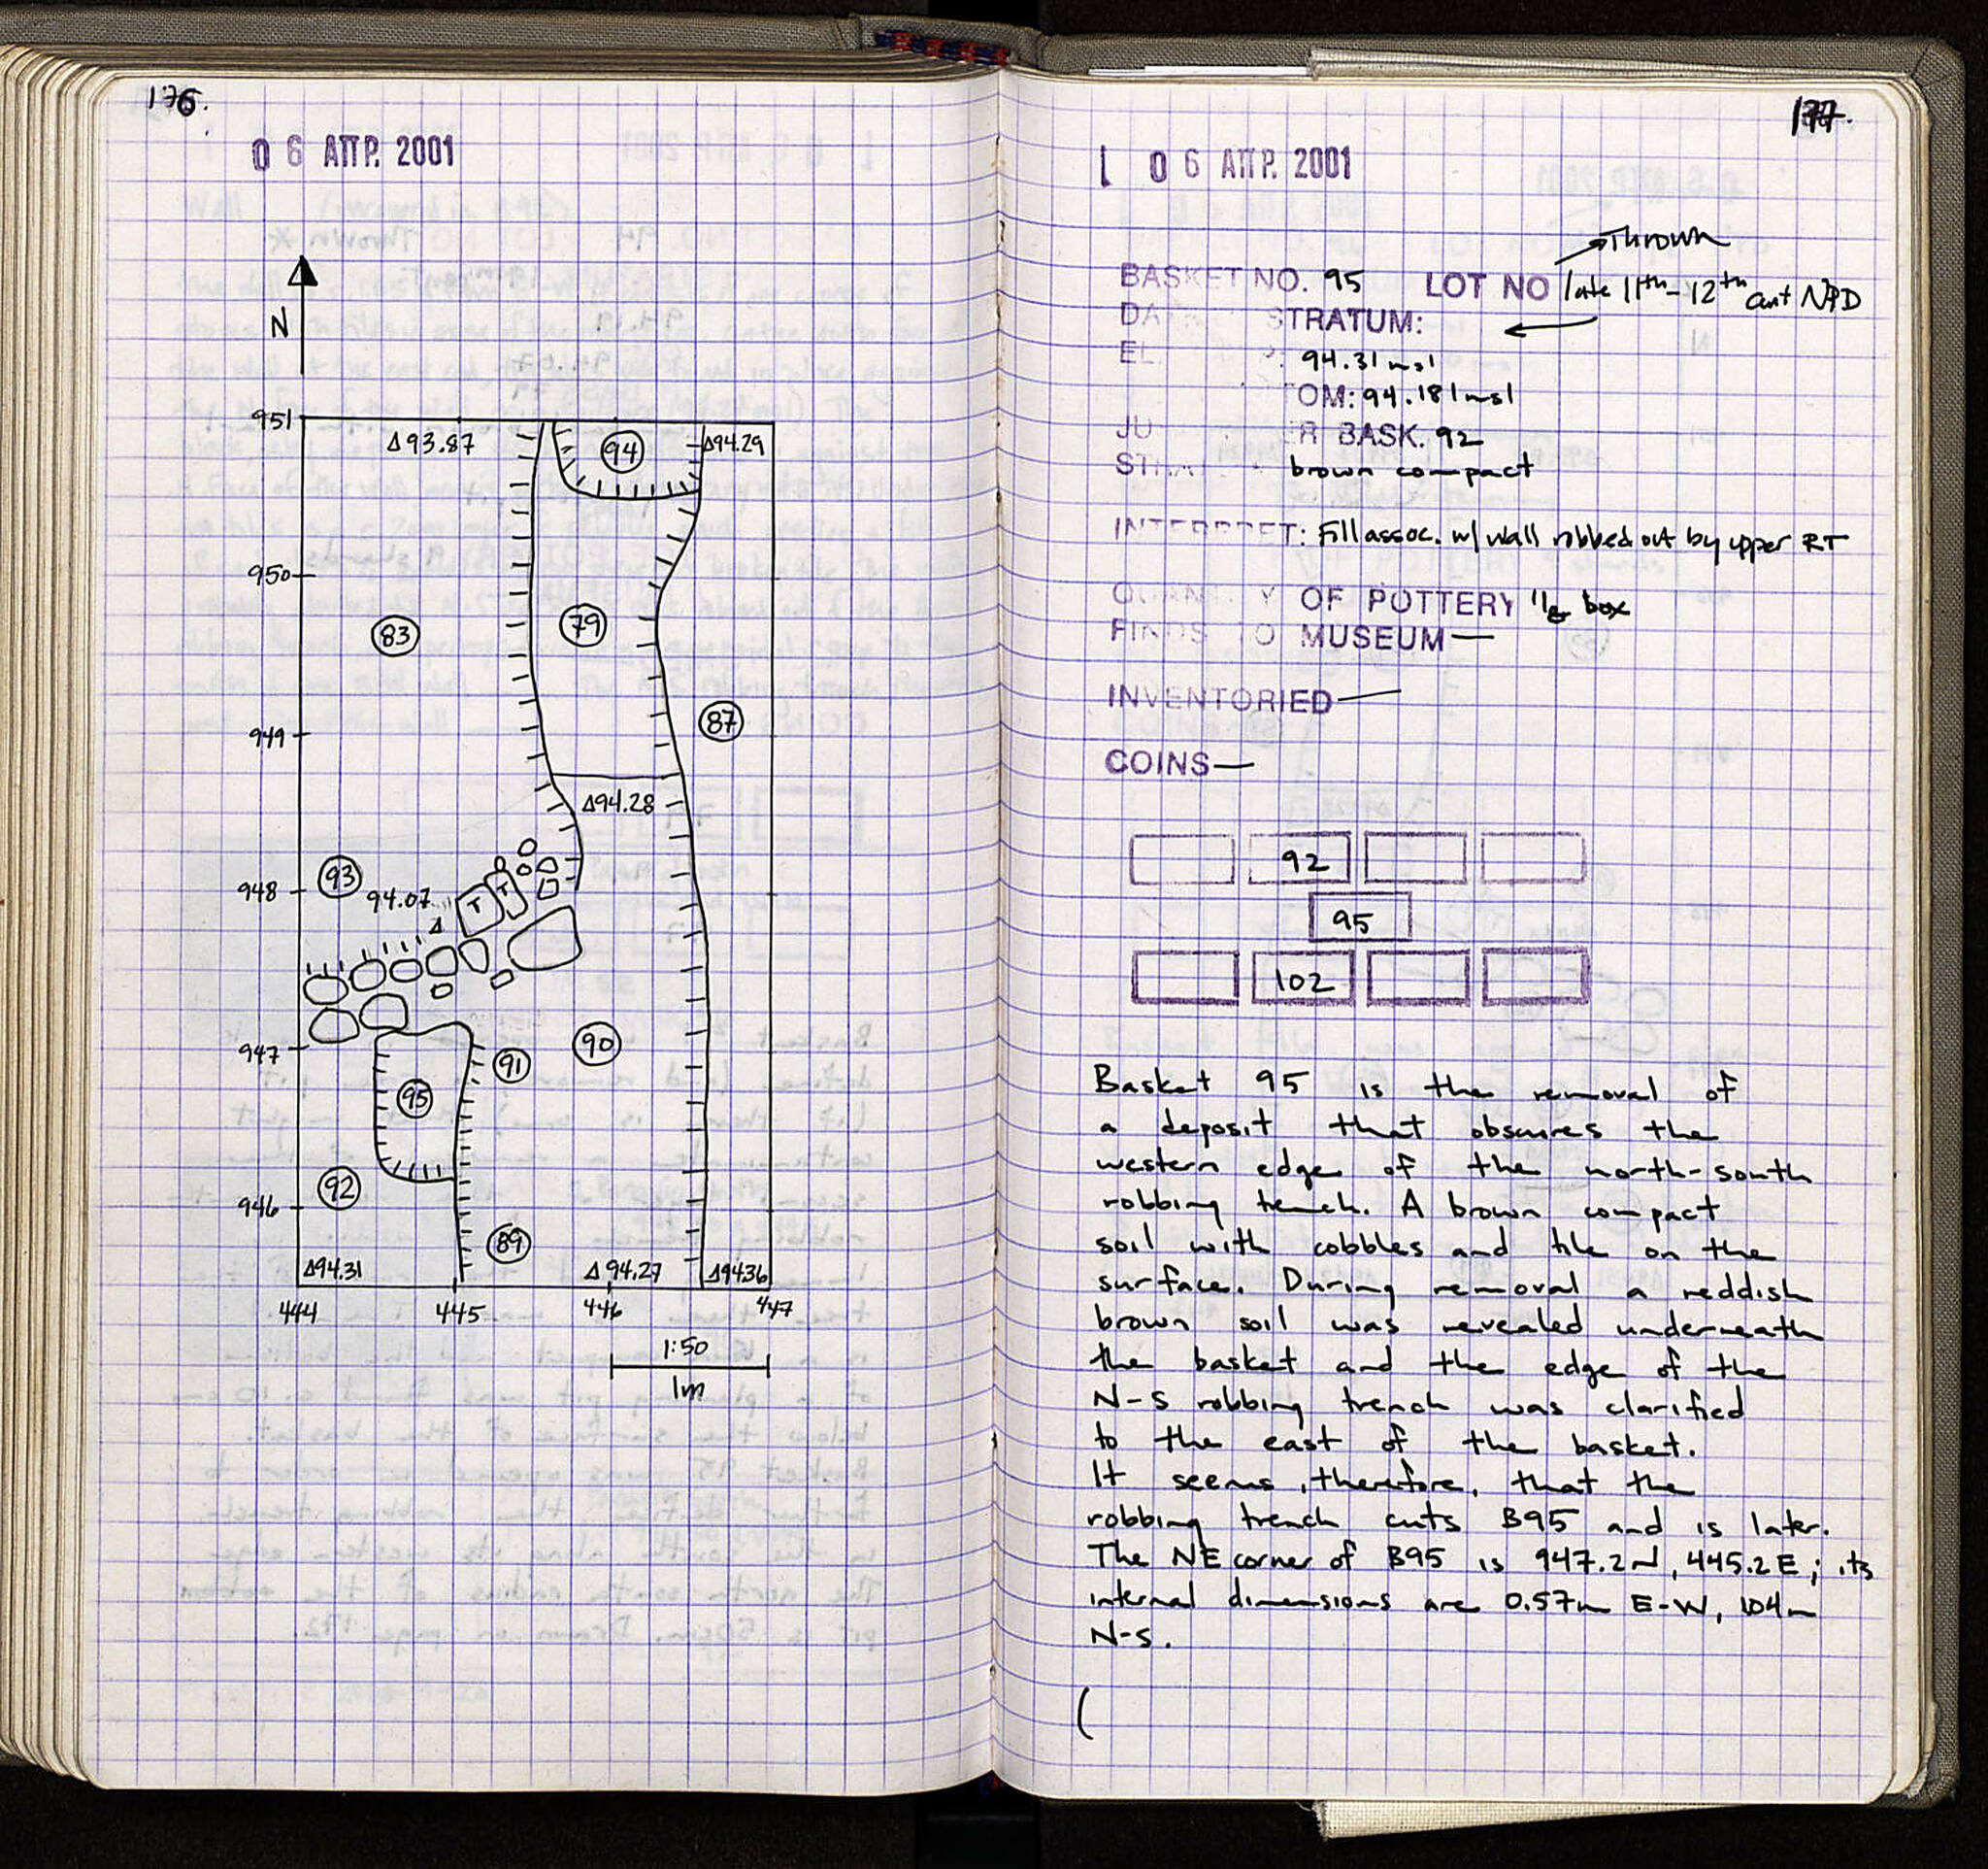 176.
0 6 ΑΠΡ. 2001
N
951
Δ93.87
94
Δ94.29
950
83
79
949
87
Δ94.28
948
93
94.07
Δ
T
T
947
95
91
90
946
92
89
Δ94.31
Δ94.27
Δ94.36
444
445
446
447
1:50
1m
177.
0 6 ΑΠΡ. 2001
Thrown
BASKET NO. 95 LOT NO late 11th-12th cent NPD
STRATUM:
EL. 94.31 msl
OM: 94.18 msl
JU R BASK. 92
brown compact
INTERPRET: Fill assoc. w/ wall robbed out by upper RT
OF POTTERY box
FINDS TO MUSEUM—
INVENTORIED—
COINS—
92
95
102
Basket 95 is the removal of
a deposit that obscures the
western edge of the north-south
robbing trench. A brown compact
soil with cobbles and tile on the
surface. During removal a reddish
brown soil was revealed underneath
the basket and the edge of the
N-S robbing trench was clarified
to the east of the basket.
It seems, therefore, that the
robbing trench cuts B95 and is later.
The NE corner of B95 is 947.2N, 445.2E; its
internal dimensions are 0.57m E-W, 1.04m
N-S.